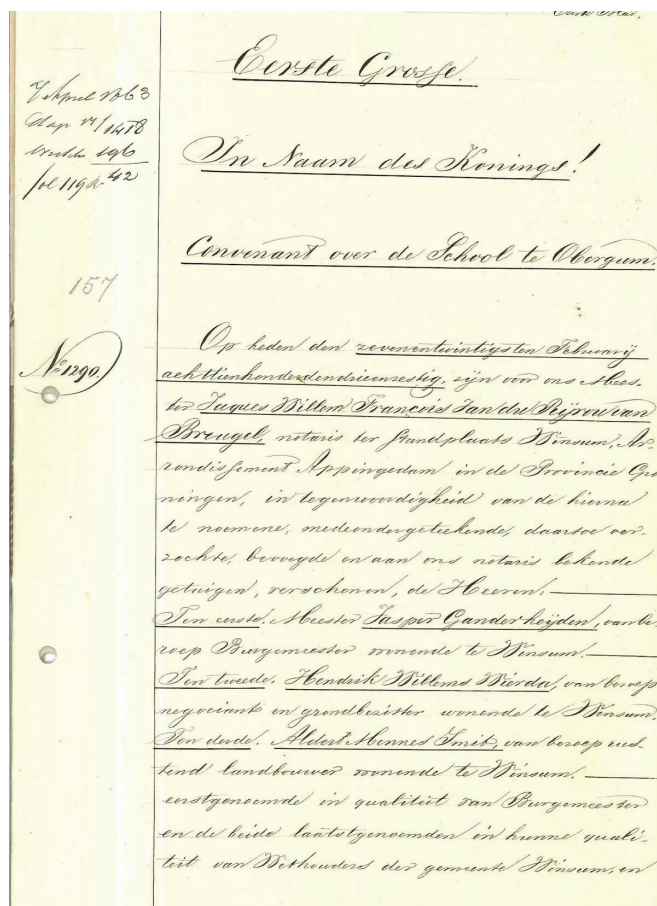 Eerste Grosse.
7 April 1863
In Naam des Konings!
Convenant over de School te Obergum.
157
No 1290
Op heden den zevenentwintigsten Februarij
achttienhonderdendrieenzestig, zijn voor ons Mees-
ter Jaques Willem François Jan du Peijrou van
Breugel, notaris ter standplaats Winsum, Ar-
rondissement Appingedam in de Provincie Gro
ningen, in tegenwoordigheid van de hierna
te noemene, medeondergeteekende, daartoe ver-
zochte, bevoegde en aan ons notaris bekende
getuigen, verschenen, de Heeren.
Ten eerste. Meester Jasper Ganderheijden, van be-
roep Burgemeester wonende te Winsum.
Ten tweede. Hendrik Willems Wierda, van beroep
negociant en grondbezitter wonende te Winsum.
Ten derde. Aldert Mennes Smit, van beroep rus-
tend landbouwer wonende te Winsum.
eerstgenoemde in qualiteit van Burgemeester
en de beide laatstgenoemden in hunne quali-
teit van Wethouders der gemeente Winsum, en